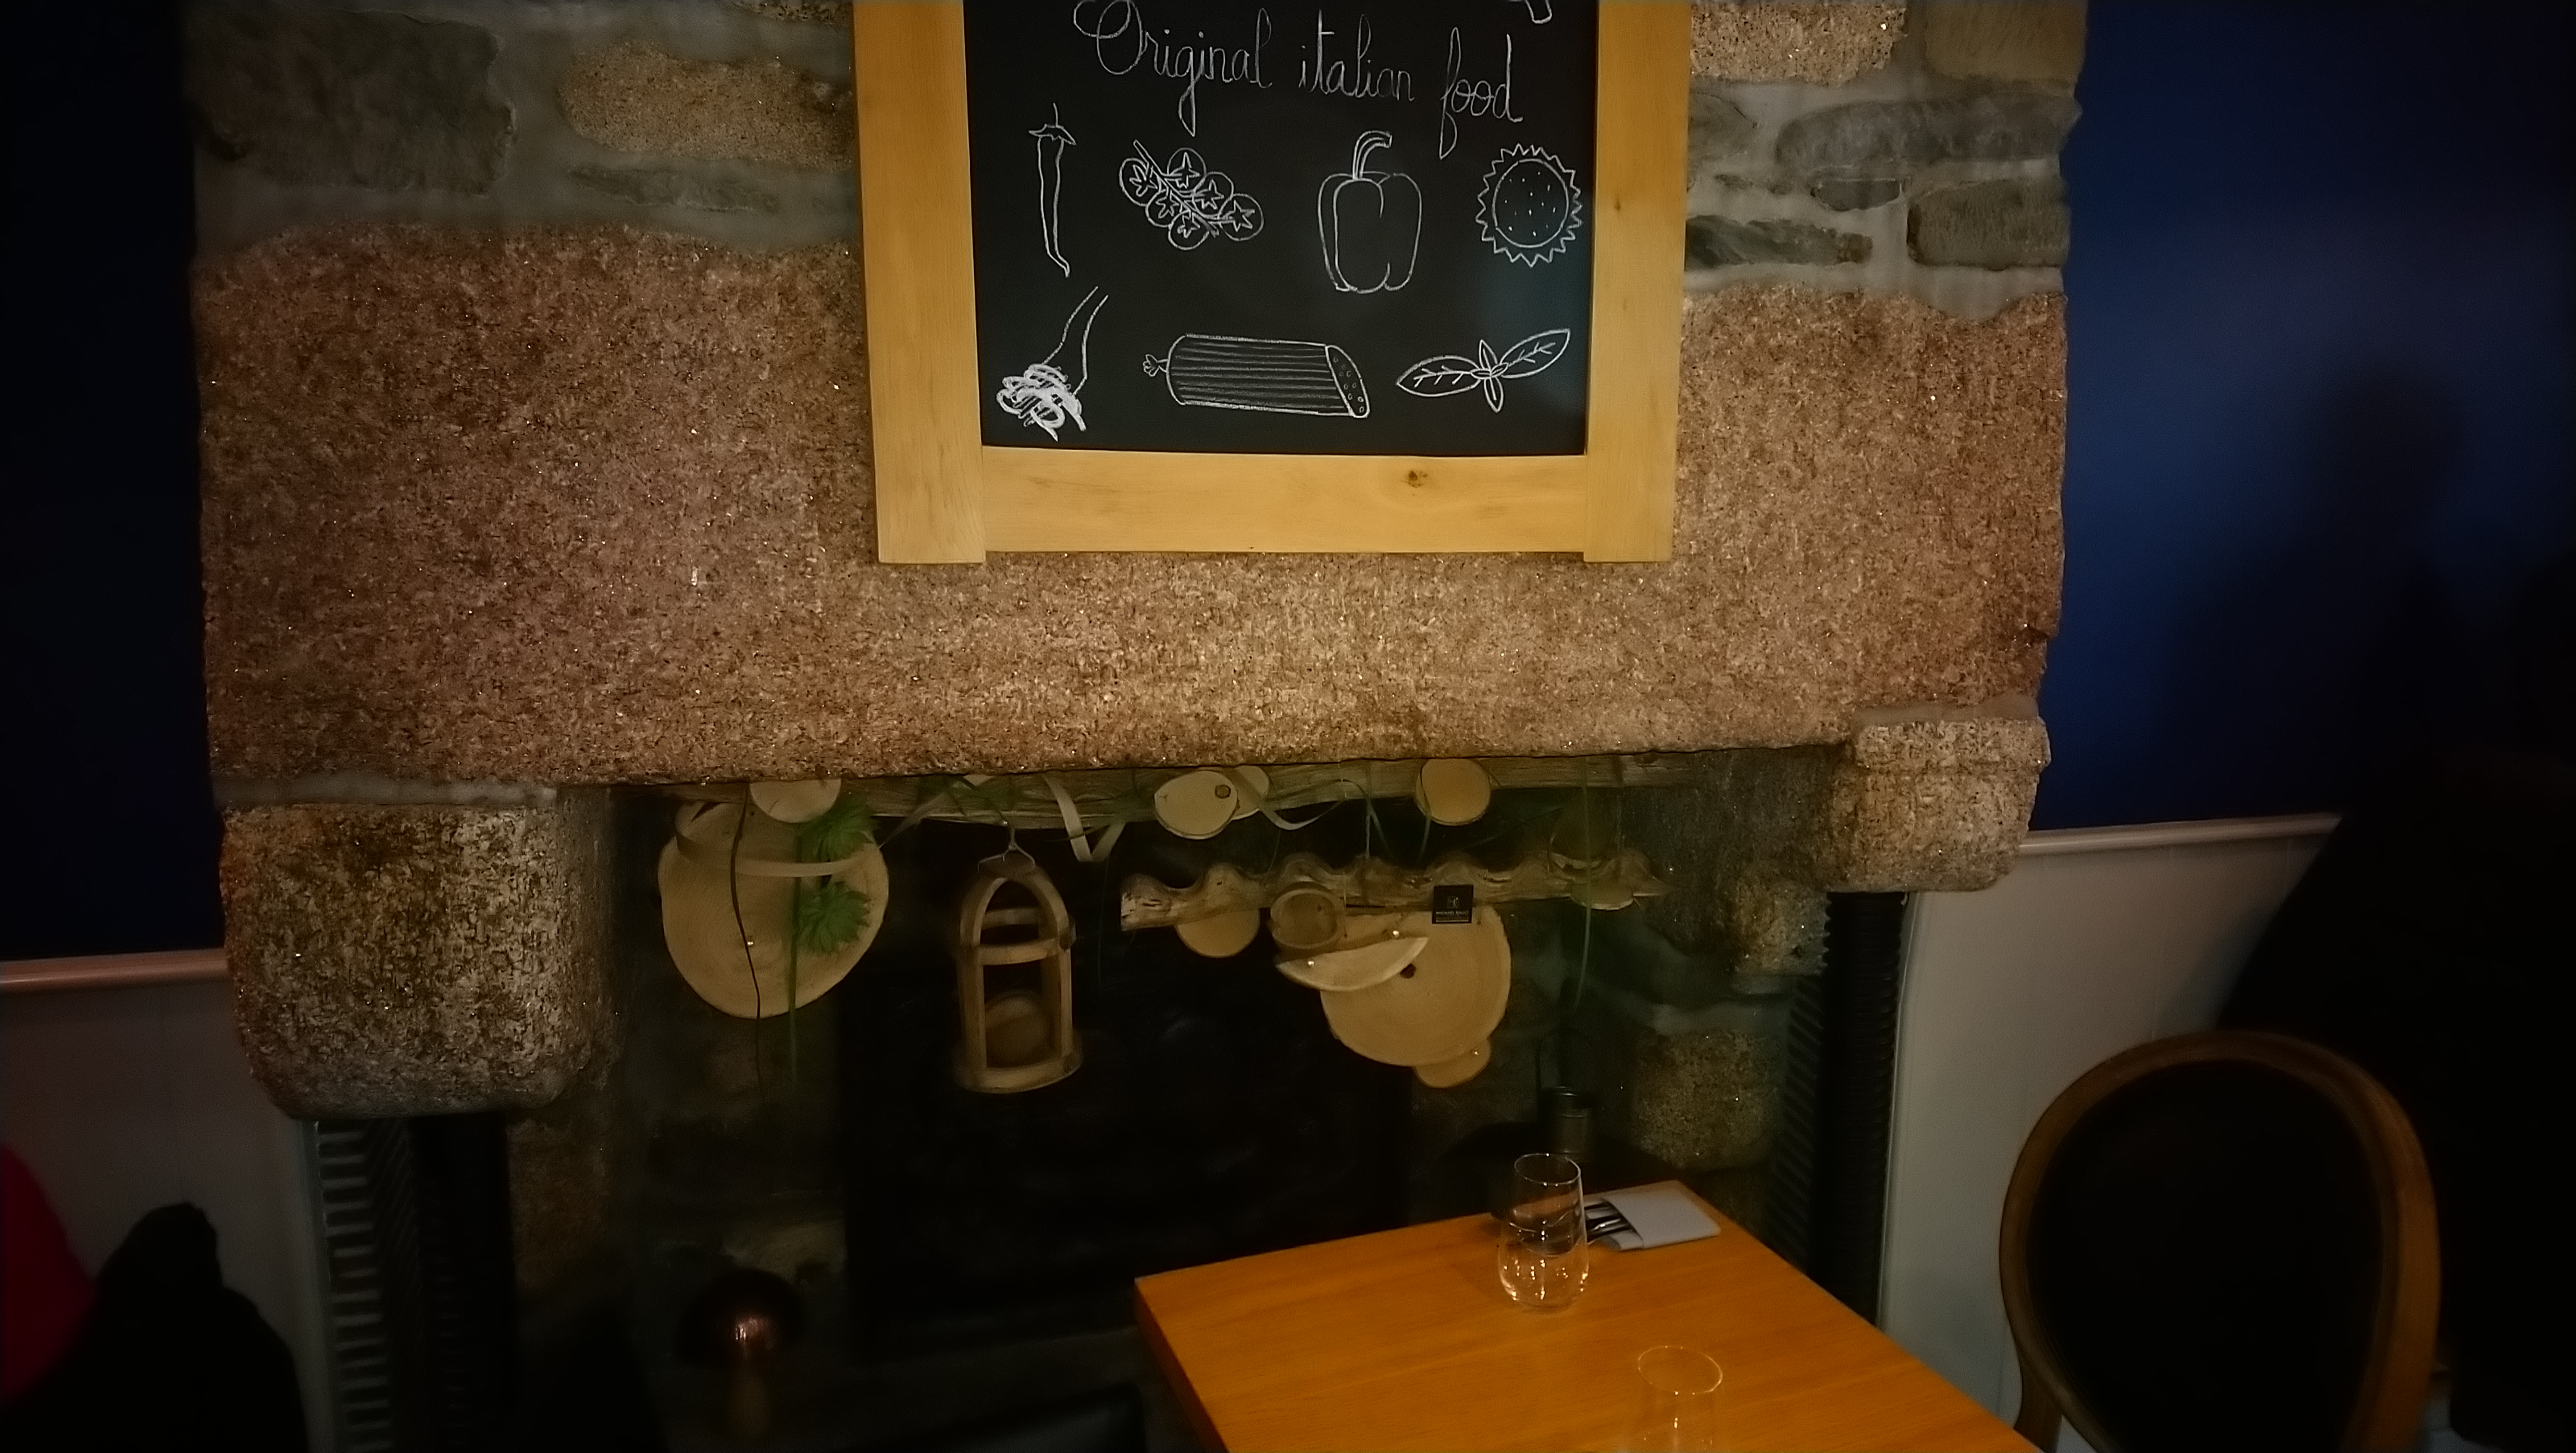 Original italian food